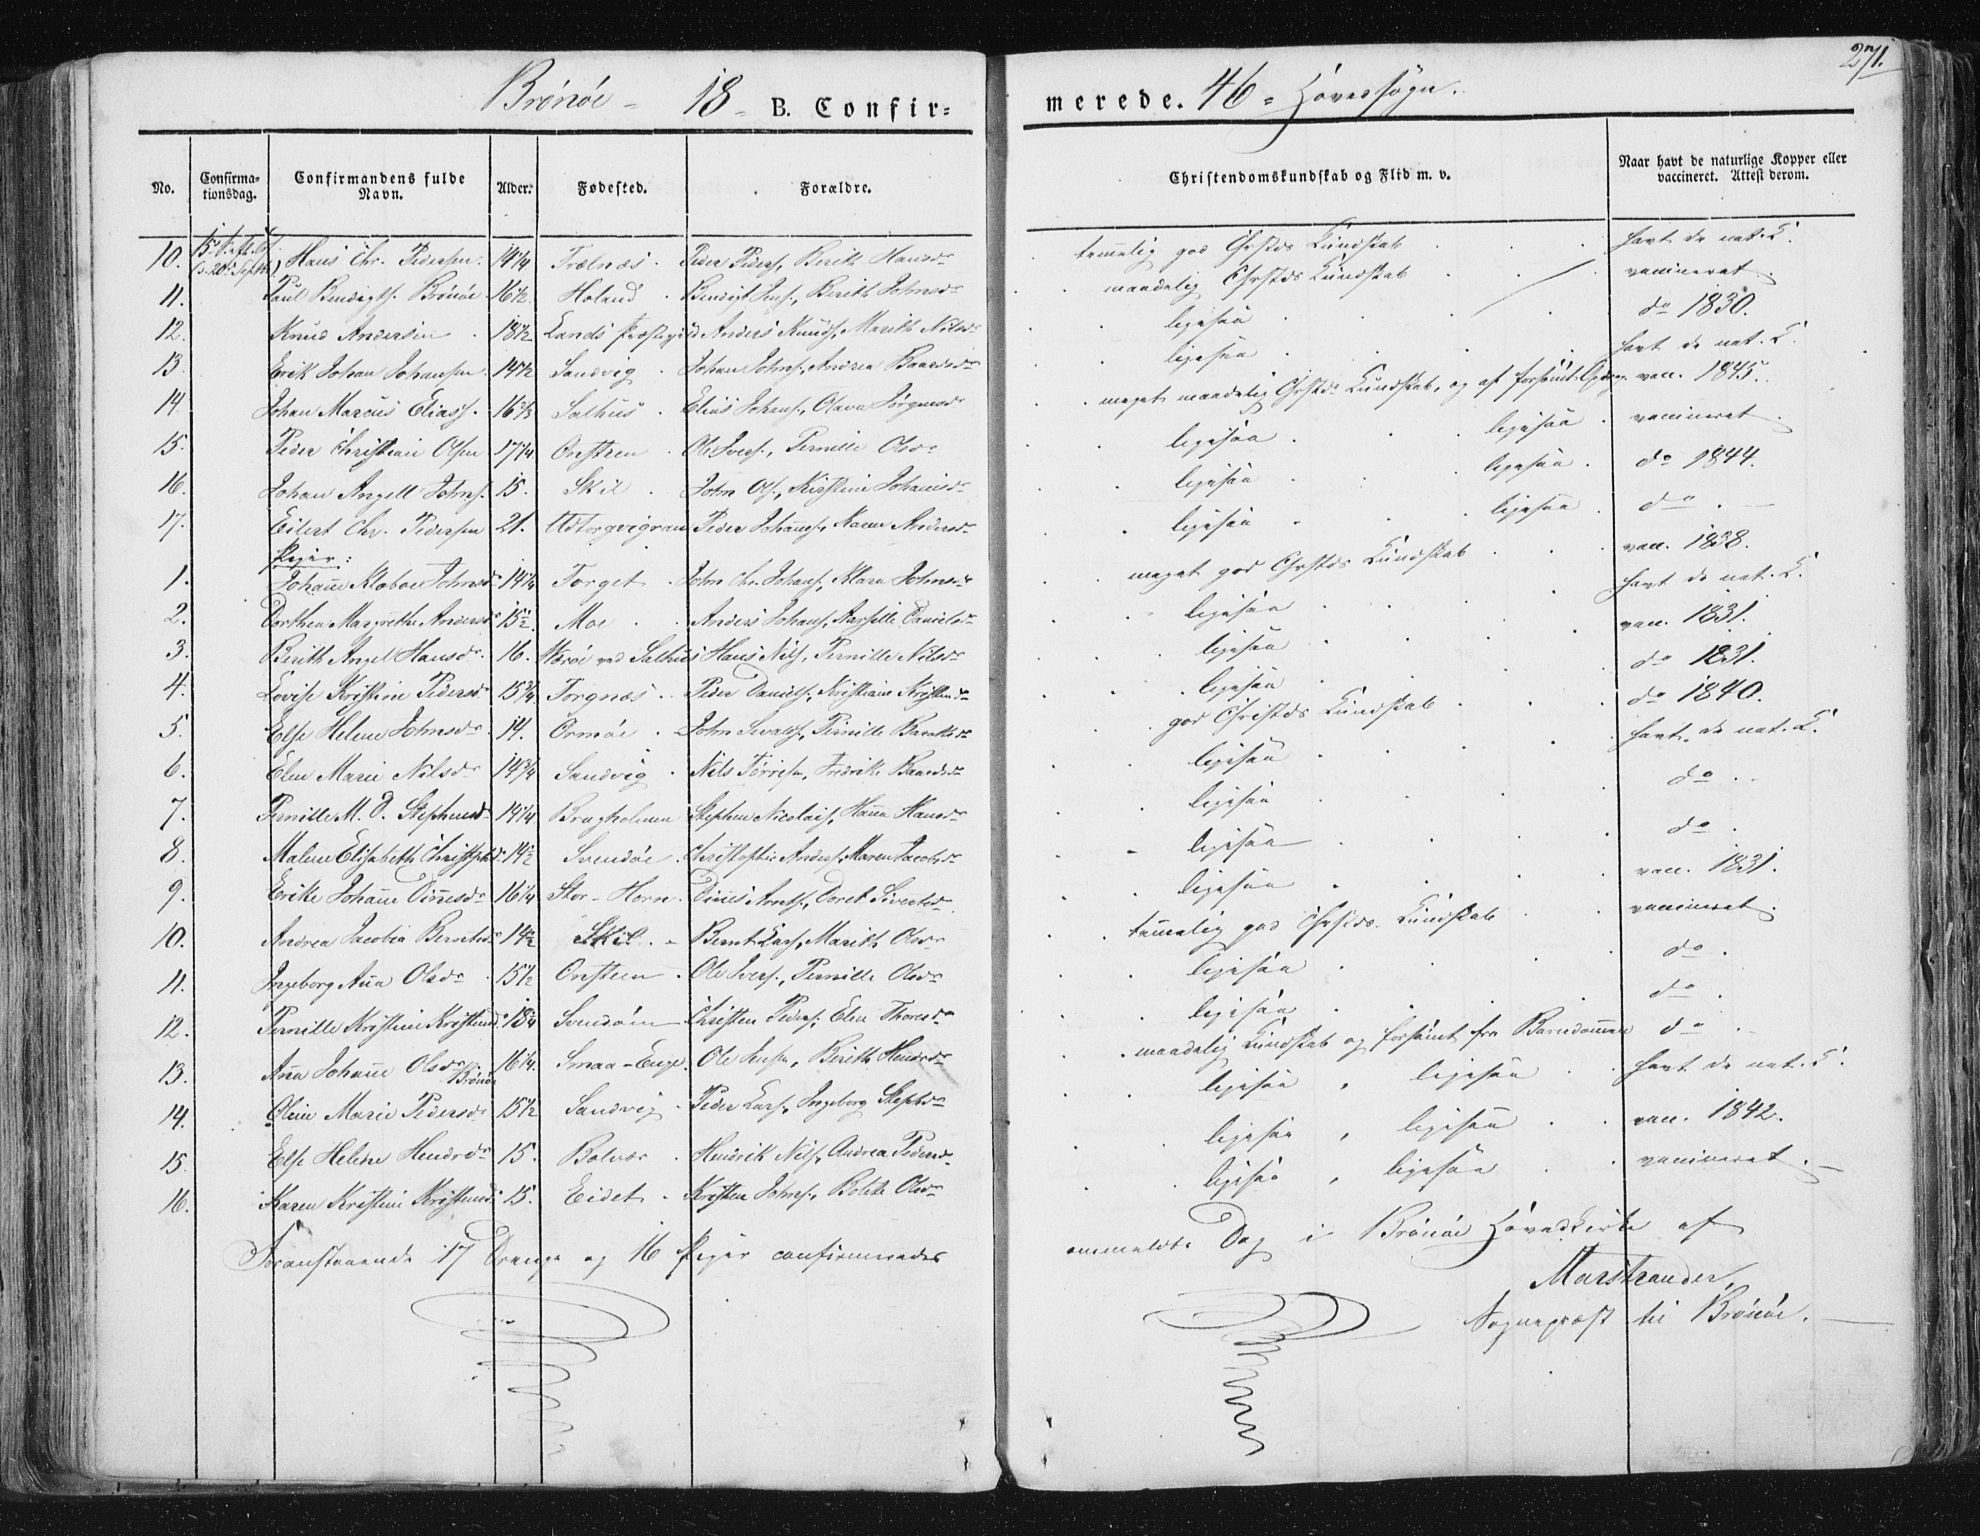 Brönöe - 18 - B. Confir=
merede. 46 = Hovedsogn.
271.
No.
Confirma-
tionsdag.
Confirmandens fulde
Navn.
Alder.
Fødested.
Forældre.
Christendomskundskab og Flid m. v.
Naar havt de naturlige Kopper eller
vaccineret. Attest derom.
10. Hans Chr. Pedersen. 14 1/4 Trælnæs. Peder Peders., Berith Hansdr temmelig god Chrstds Kundskab havt de nat. K.
11. Paul Bendigts. Brönöe 16 1/2 Holand. Bendigt Jens., Berith Johnsdr maadelig Chrstds Kundskab vaccineret.
12. Knud Andersen 18 1/2 Lands Præstegjeld Anders Knuds., Marith Nilsdr ligesaa do 1830.
13. Erik Johan Johansen 14 1/2 Sandvig. Johan Johns., Andrea Baardsdr ligesaa havt de nat. K.
14. Johan Marcus Eliass. 16 Salhus. Elias Johans., Olava Jörgensdr meget maadelig Chrstds Kundskab, og af forsömt vacc. 1845.
15. Peder Christian Olsen 17 1/4 Ole Ivers., Pernille Olsdr ligesaa ligesaa vaccineret
16. Johan Angell Johns. 15. Skil John Ols., Kirstine Johansdr ligesaa ligesaa do 1844.
17. Eilert Chr. Pedersen 21. Peder Johans., Karen Andersdr ligesaa ligesaa do
Piger:
1. Johanne Klæboe Johnsdr 14 1/4 Torget John Chr. Johans., Klara Johnsdr meget god Chrstds Kundskab vacc. 1838.
2. Dorthea Margrethe Andersdr 15 1/2 Moe Anders Johans., Danielsdr ligesaa havt de nat. K.
3. Berith Angel Hansdr. 16. Værøe ved Salhus Hans Nils., Pernille Nilsdr ligesaa vacc. 1831.
4. Lovise Kristine Pedersdr 15 3/4 Torgnæs. Peder Daniels., Kristiane Kristensdr ligesaa do 1831.
5. Else Helene Johnsdr 14. Ormöe. John Siverts., Pernille god Christds Kundskab do 1840.
6. Elen Marie Nilsdr 14 3/4 Sandvig. Nils Törrisen, Fredrikke Baardsdr ligesaa havt de nat. K.
7. Pernille M. D. Stephensdr 14 1/4 Bragholmen Stephen Nicolais., Hanna Hansdr ligesaa do
8. Malene Elisabeth Christophdr 14 1/2 Svendöe. Christopher Anders., Maren Jacobsdr ligesaa do
9. Erike Johanne Dinesdr 16 1/4 Stor-Horn. Dines Arnts., Doret Sivertsdr ligesaa vacc. 1831.
10. Andrea Jacobia Berntsdr 14 1/2 Skil. Bernt Lars., Marith Olsdr temmelig god Chrstds. Kundskab vaccineret.
11. Ingeborg Anna Olsdr 15 1/2 Ole Ivers., Pernille Olsdr ligesaa do
12. Pernille Kristine Kristensdr 18 Christen Peders., Elen Thoresdr ligesaa do
13. Anna Johanne Olsdr Brönöe 16 1/4. Smaa-Enge. Ole Jensen, Berith Hendrdr maadelig Kundskab og forsömt fra Barndommen do
14. Oline Marie Pedersdr 15 1/2 Sandvig. Peder Lars., Ingeborg Stephdr ligesaa, ligesaa havt de nat. K.
15. Else Helene Hendrdr 15. Bolvær. Hendrik Nils., Andrea Pedersdr ligesaa, ligesaa vacc. 1842.
16. Karen Kristine Kristensdr 15. Eidet. Kristen Johns., Bolete Olsdr ligesaa, ligesaa vaccineret.
Foranstaaende 17 Drenge og 16 Piger confirmeredes
ommeldte Dag i Brönöe Hovedkirke af
Marstrander,
Sognepræst til Brönöe.